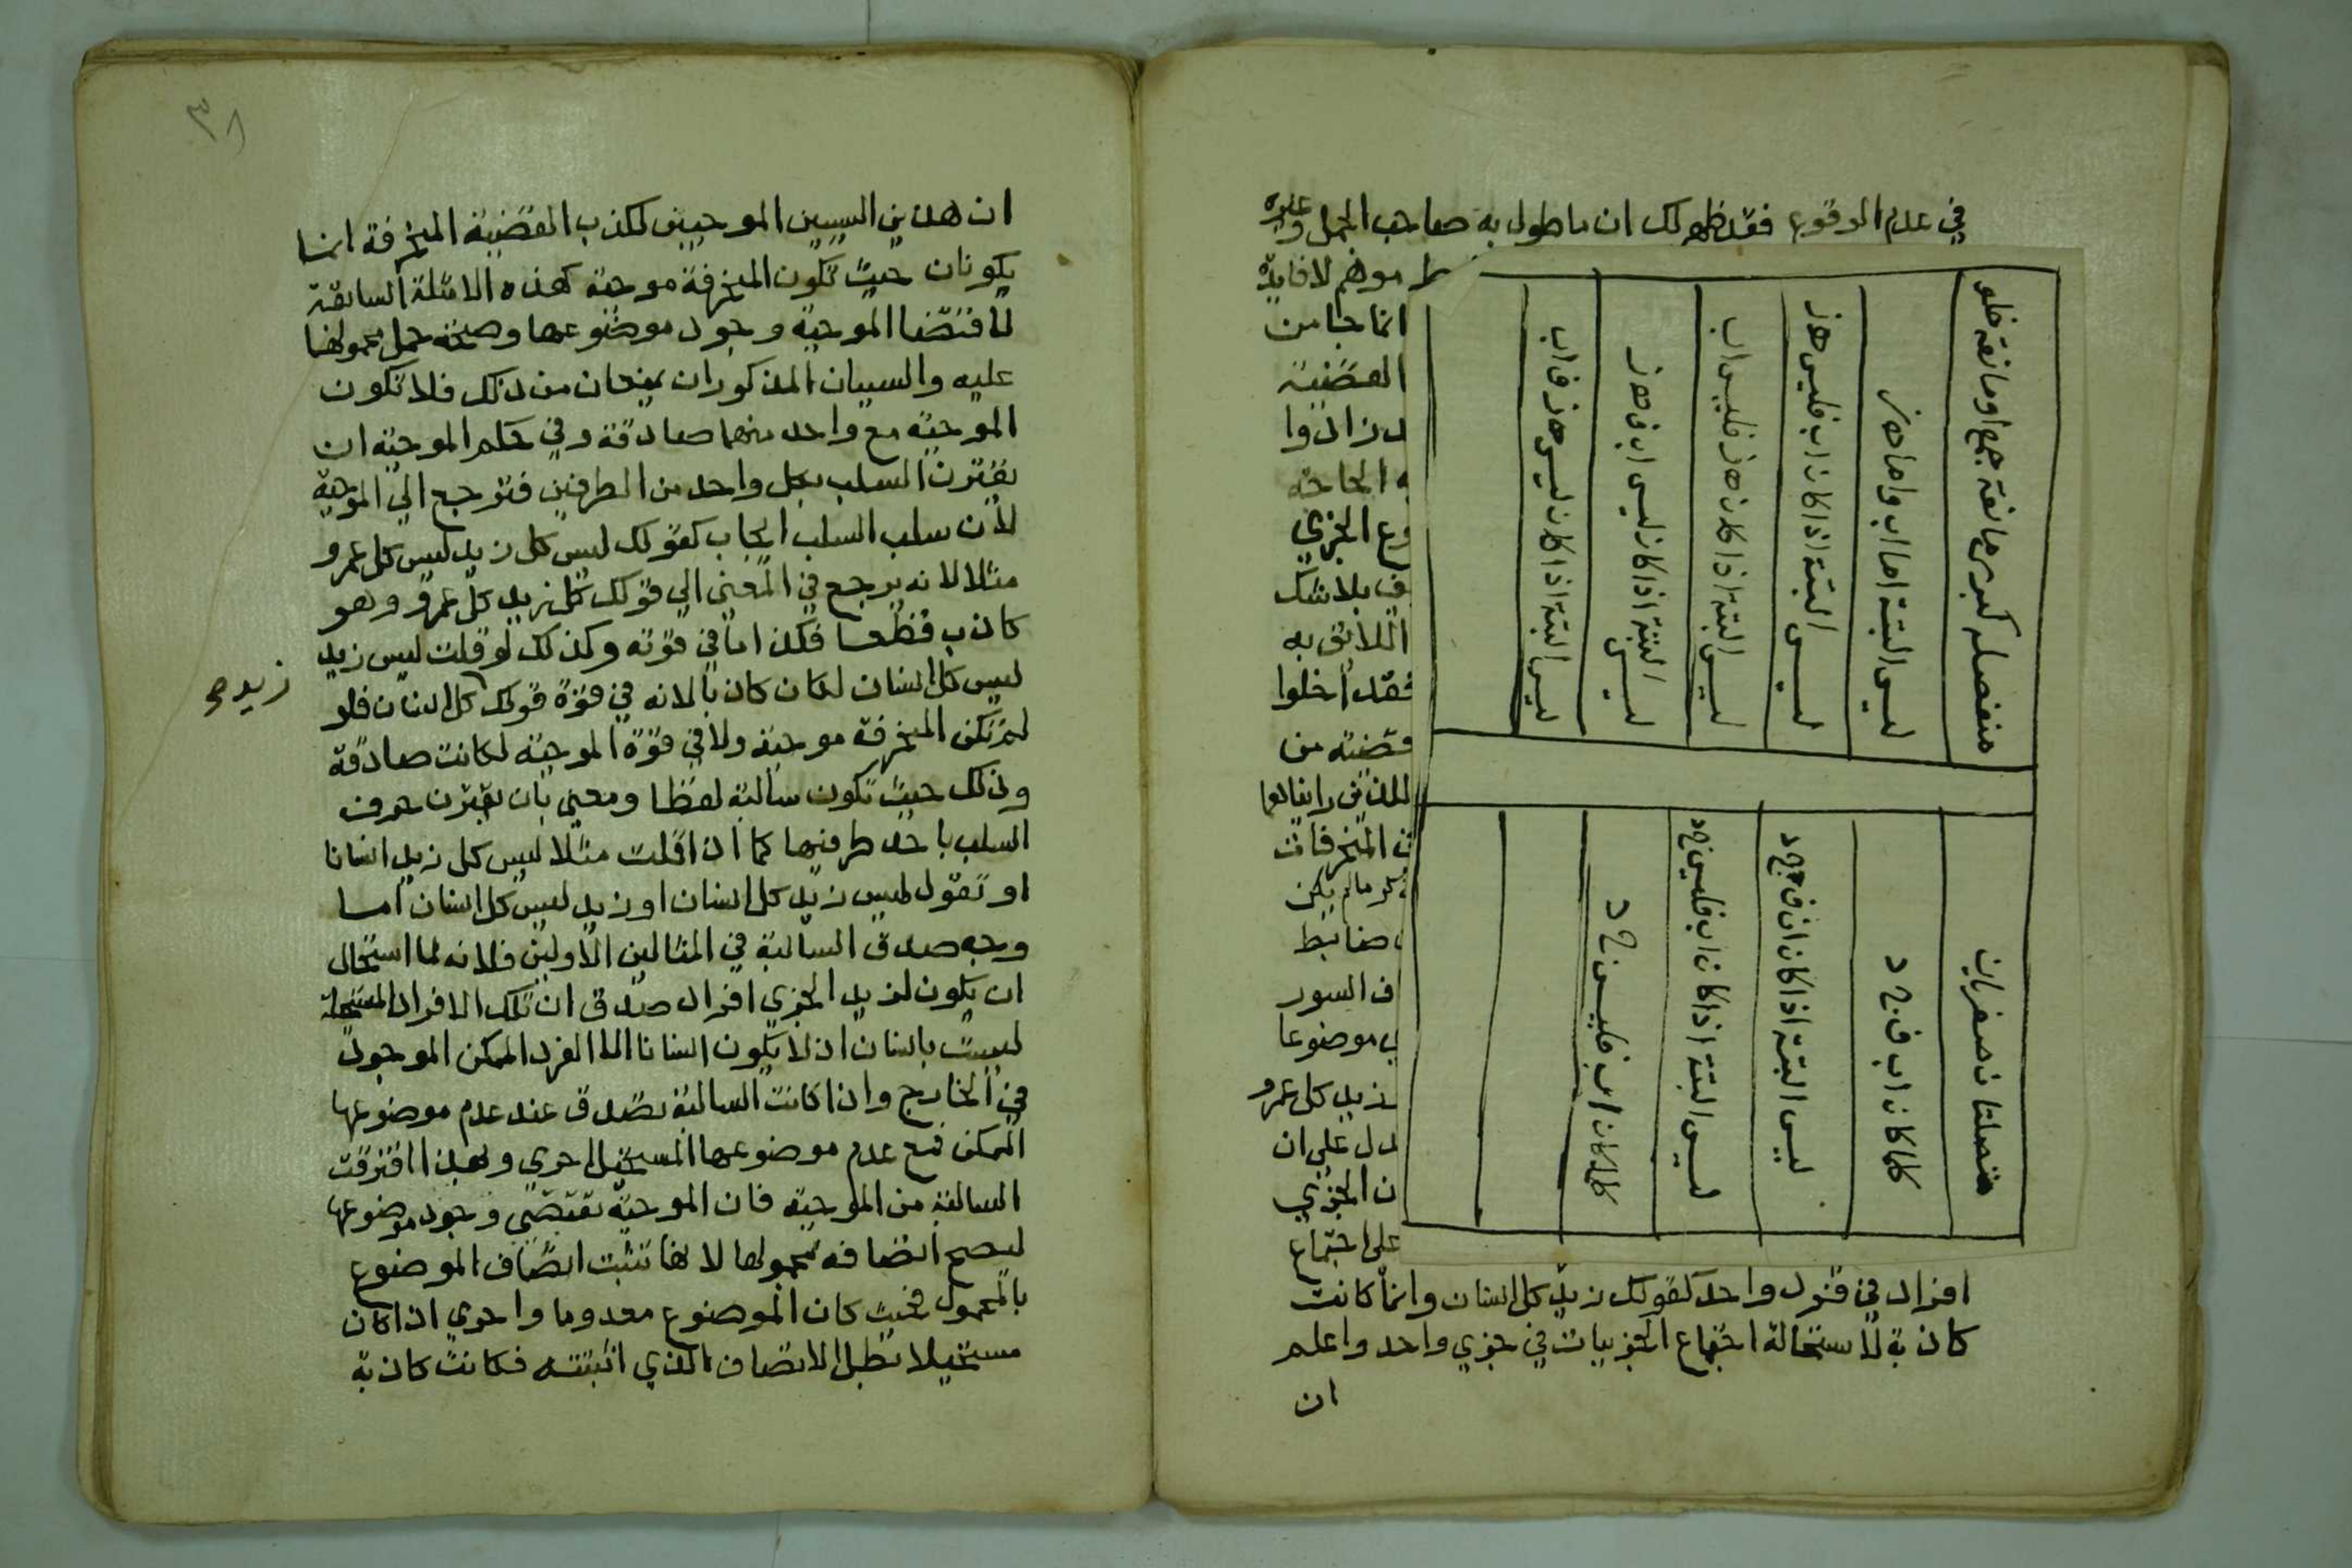 في عدم الوقوع فقد ظهر لك ان ما طول به صاحب الجمل وغيره
موهم لا فايدة
انما جا من
القضية
زادوا
الحاجة
الجزي
بلا شك
اللائق به
فقد أخلوا
قضية من
المنحرفات
مالم يكن
ضابط
السور
موضوعا
زيد كل عمرو
دل على ان
الجزي
على اجتماع
افراد في فرد واحد كقولك زيد كل انسان وانما كانت
كاذبة لاستحالة اجتماع الجزييات في جزي واحد واعلم
ان
منفصله كبري مانعة جمع او مانعة خلو
ليس البتة اما اب واما هز
ليس البتة اذا كان اب فليس هز
ليس البتة اذا كان هز فليس اب
ليس البتة اذا كان ليس اب فهز
ليس البتة اذا كان ليس هز فاب
متصلتان صغريان
كلما كان اب فجد
ليس البتة اذا كان اب فجد
ليس البتة اذا كان اب فليس جد
كلما كان اب فليس جد
٣٨
ان هذين السببين الموجبين لكذب القضية المنحرفة انما
يكونان حيث تكون المنحرفة موجبة كهذه الامثلة السابقة
لاقتضا الموجبة وجود موضوعها وصحة حمل محمولها
عليه والسببان المذكوران يمنعان من ذلك فلا تكون
الموجبة مع واحد منهما صادقة وفي حكم الموجبة ان
يقترن السلب بكل واحد من الطرفين فترجع الي الموجبة
لأن سلب السلب ايجاب كقولك ليس كل زيد ليس كل عمرو
مثلا لانه يرجع في المعني الي قولك كل زيد كل عمرو وهو
كاذب قطعا فكذا ما في قوته وكذلك لو قلت ليس زيد
ليس كل انسان لكان كاذبا لانه في قوة قولك كل انسان فلو
زيد صح
لم تكن المنحرفة موجبة ولا في قوة الموجبة لكانت صادقة
وذلك حيث تكون سالبة لفظا ومعني بان يقترن حرف
السلب باحد طرفيها كما اذا قلت مثلا ليس كل زيد انسانا
او تقول ليس زيد كل انسان او زيد ليس كل انسان اما
وجه صدق السالبة في المثالين الأولين فلانه لما استحال
ان يكون لزيد الجزي افراد صدق ان تلك الافراد المستحيلة
ليست بانسان اذ لا يكون انسانا الا الفرد الممكن الموجود
في الخارج واذا كانت السالبة تصدق عند عدم موضوعها
الممكن فمع عدم موضوعها المستحيل احري وبهذا افترقت
السالبة من الموجبة فان الموجبة تقتضي وجود موضوعها
ليصح اتصافه بمحمولها لانها تثبت اتصاف الموضوع
بالمحمول فحيث كان الموضوع معدوما واحري اذا كان
مستحيلا بطل الاتصاف الذي اثبتته فكانت كاذبة